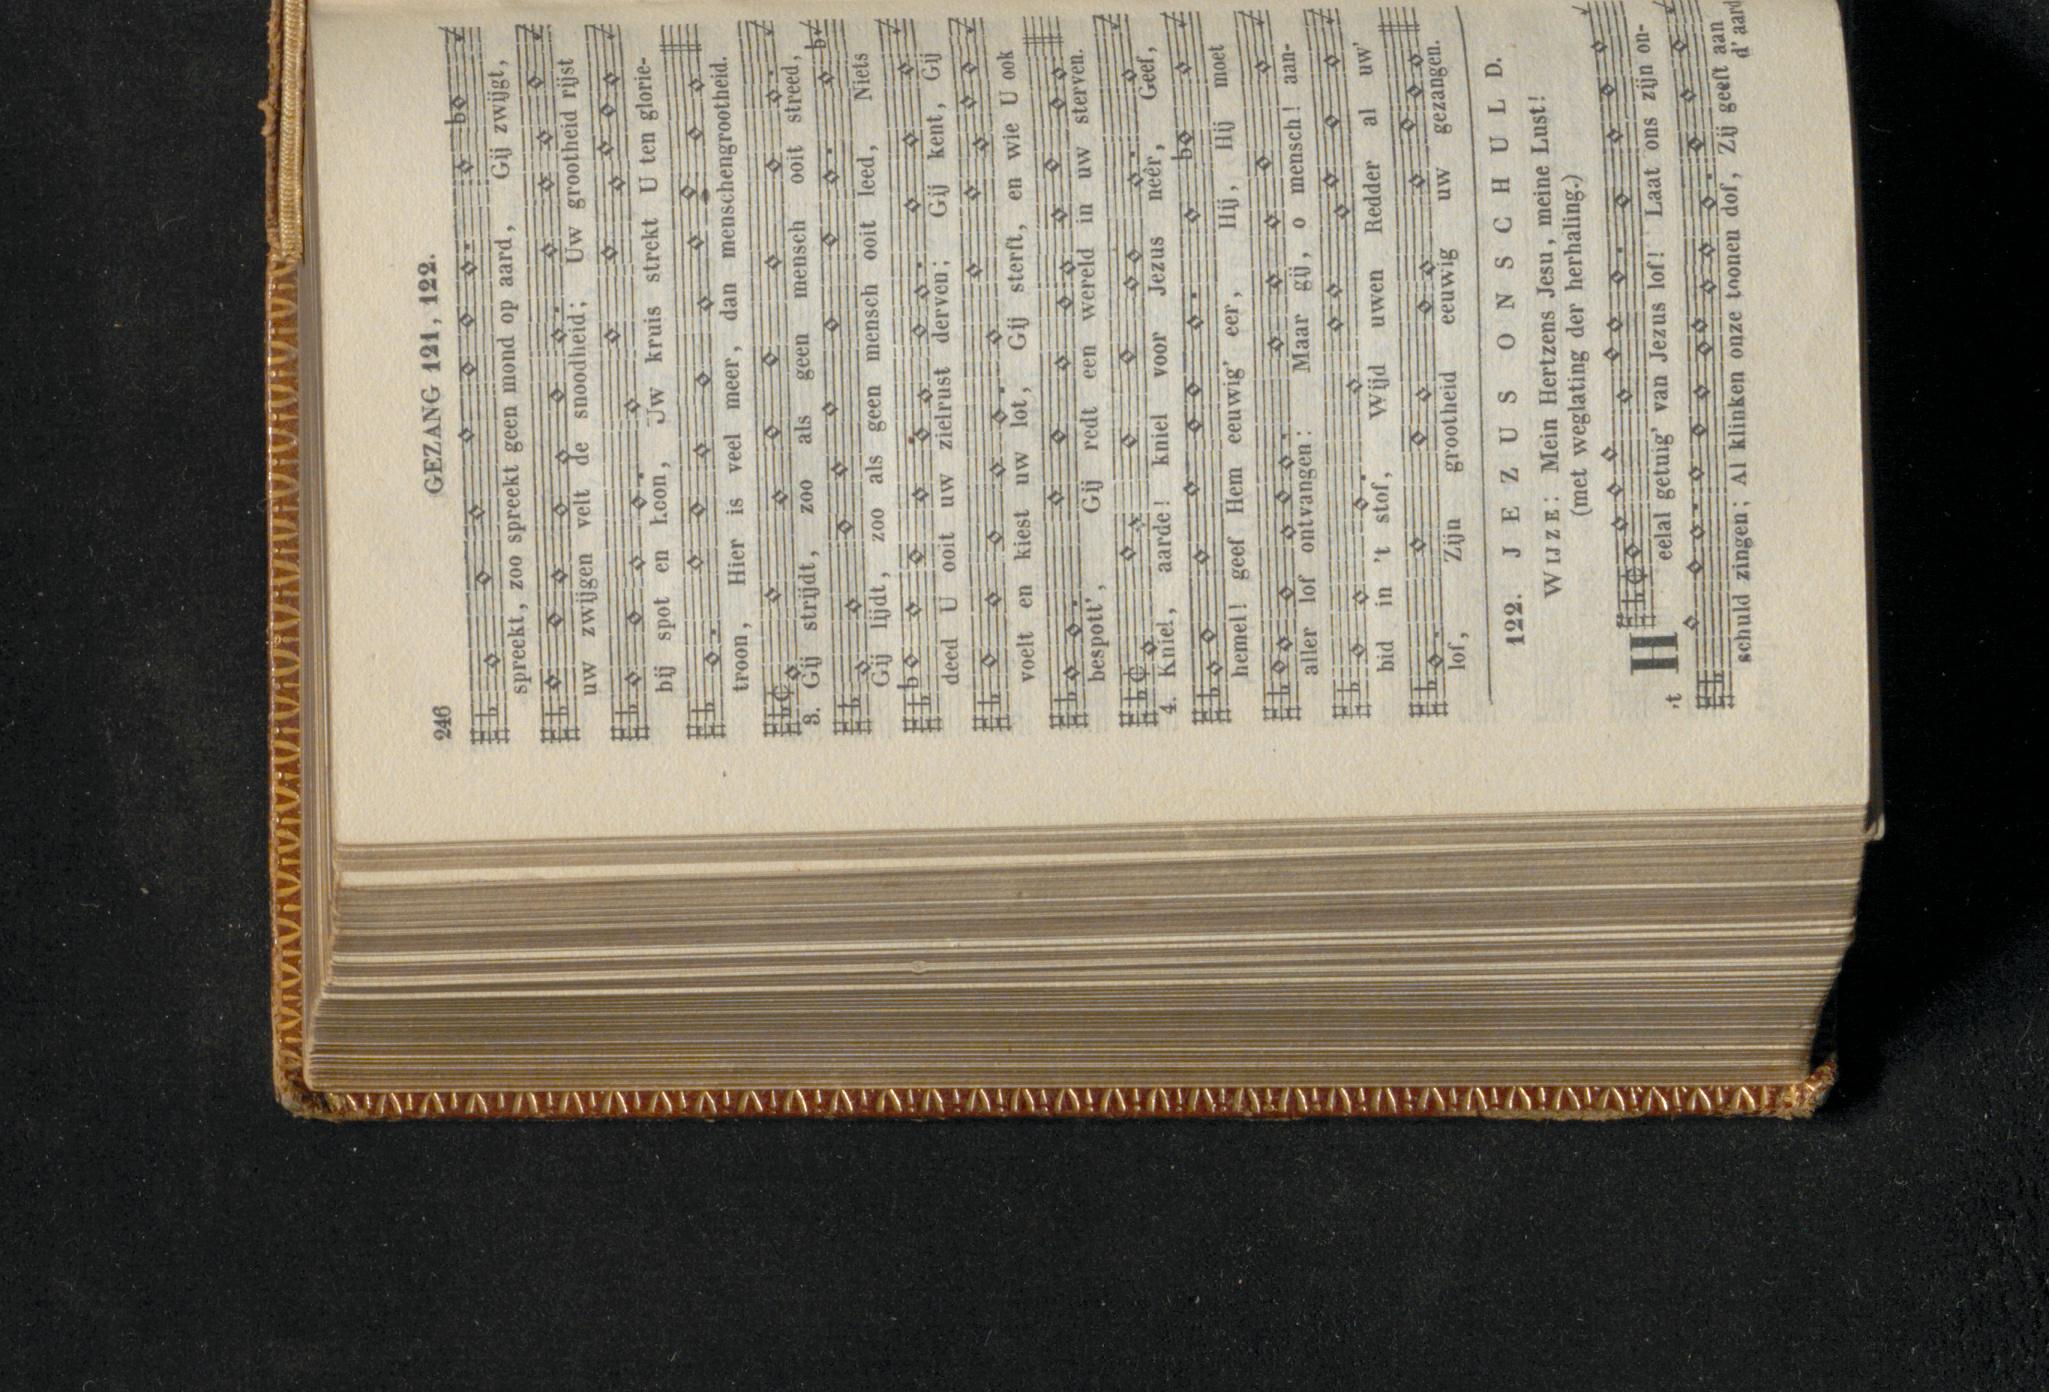 246 GEZANG 121, 122.
spreekt, zoo spreekt geen mond op aard, Gij zwijgt,
uw zwijgen velt de snoodheid; Uw grootheid rijst
bij spot en hoon, Uw kruis strekt U ten glorie-
troon, Hier is veel meer, dan menschengrootheid.
3. Gij strijdt, zoo als geen mensch ooit streed,
Gij lijdt, zoo als geen mensch ooit leed, Niets
deed U ooit uw zielrust derven; Gij kent, Gij
voelt en kiest uw lot, Gij sterft, en wie U ook
bespott', Gij redt een wereld in uw sterven.
4. Kniel, aarde! kniel voor Jezus neêr, Geef,
hemel! geef Hem eeuwig' eer, Hij, Hij moet
aller lof ontvangen: Maar gij, o mensch! aan-
bid in 't stof, Wijd uwen Redder al uw'
lof, Zijn grootheid eeuwig uw gezangen.
122. JEZUS ONSCHULD.
WIJZE: Mein Hertzens Jesu, meine Lust!
(met weglating der herhaling.)
't Heelal getuig' van Jezus lof! Laat ons zijn on-
schuld zingen; Al klinken onze toonen dof, Zij geeft aan
d' aard